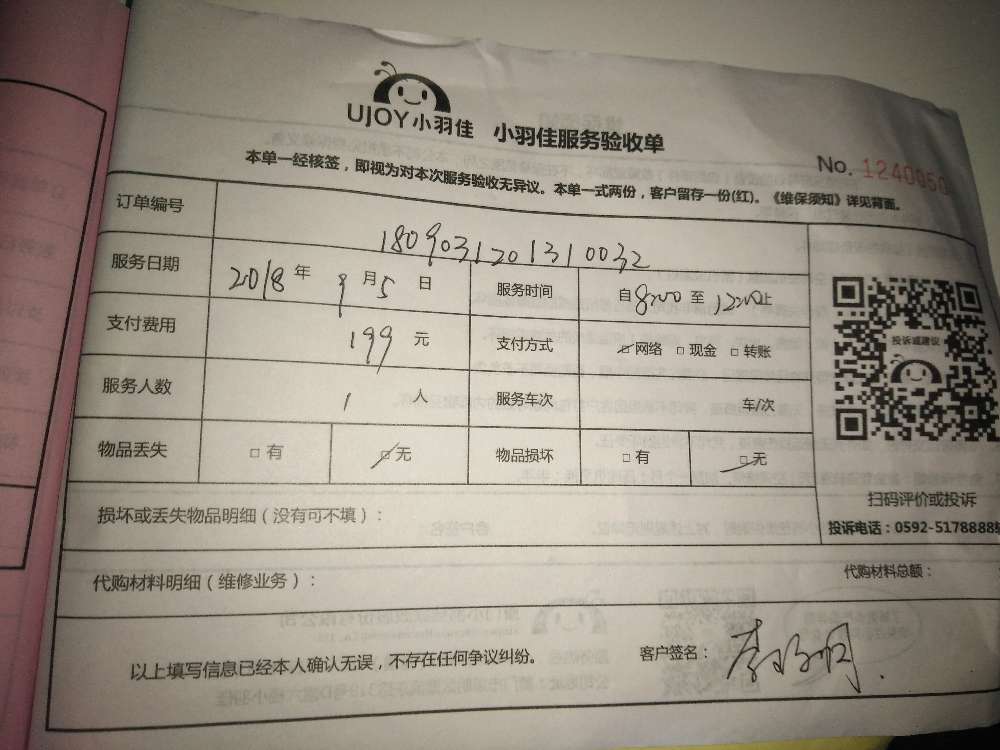 UJOY小羽佳 小羽佳服务验收单
No. 1240950
本单一经核签，即视为对本次服务验收无异议。本单一式两份，客户留存一份(红)。《维保须知》详见背面。
订单编号 1809031201310032
服务日期 2018年9月5日 服务时间 自8:00至12:00止
支付费用 199元 支付方式 ☑网络 □现金 □转账
投诉或建议
服务人数 1人 服务车次 车/次
物品丢失 □有 ☑无 物品损坏 □有 ☑无
扫码评价或投诉
损坏或丢失物品明细（没有可不填）：
投诉电话：0592-5178888
代购材料明细（维修业务）： 代购材料总额：
以上填写信息已经本人确认无误，不存在任何争议纠纷。 客户签名：